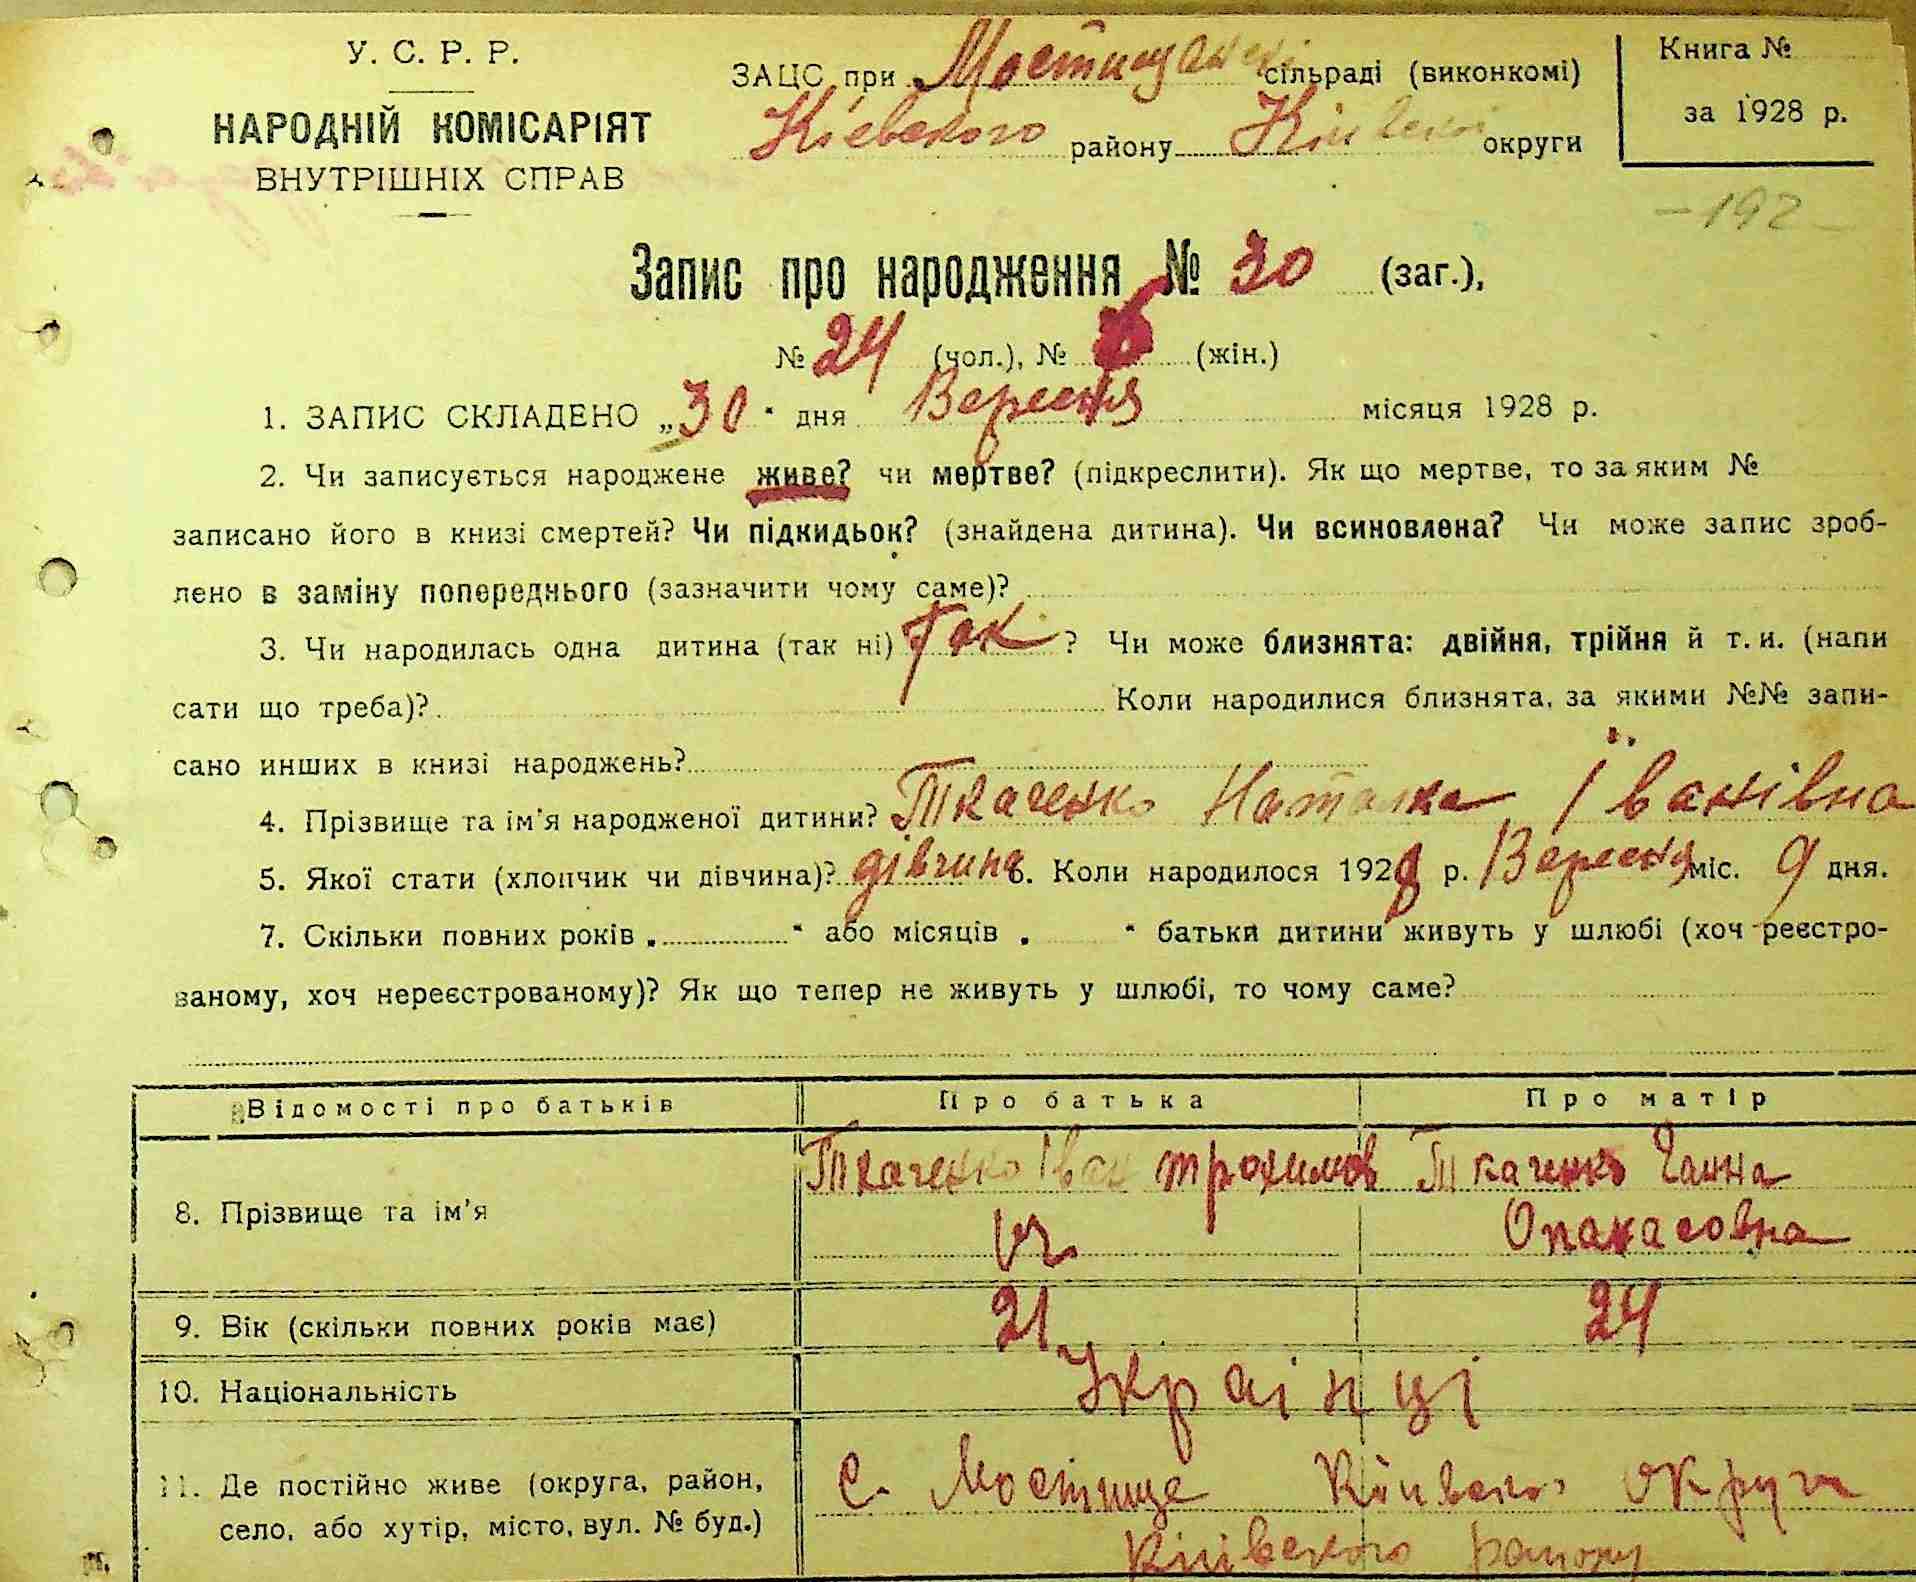 У. С. Р. Р.
НАРОДНІЙ КОМІСАРІЯТ
ВНУТРІШНІХ СПРАВ
ЗАЦС при Мостищанскі сільраді (виконкомі)
Кіевского району Київскої округи
Книга №
за 1928 р.
– 192 –
Запис про народження № 30 (заг.),
№ 24 (чол.), № 6 (жін.)
1. ЗАПИС СКЛАДЕНО „30“ дня Вересня місяця 1928 р.
2. Чи записується народжене живе? чи мертве? (підкреслити). Як що мертве, то за яким №
записано його в книзі смертей? Чи підкидьок? (знайдена дитина). Чи всиновлена? Чи може запис зроб-
лено в заміну попереднього (зазначити чому саме)?
3. Чи народилась одна дитина (так ні) Так ? Чи може близнята: двійня, трійня й т. и. (напи
сати що треба)? Коли народилися близнята, за якими №№ запи-
сано инших в книзі народжень?
4. Прізвище та ім'я народженої дитини? Ткаченко Наталка Іванівна
5. Якої стати (хлопчик чи дівчина)? дівчина 6. Коли народилося 1928 р. Вересня міс. 9 дня.
7. Скільки повних років „ “ або місяців „ “ батьки дитини живуть у шлюбі (хоч реєстро-
ваному, хоч нереєстрованому)? Як що тепер не живуть у шлюбі, то чому саме?
Відомості про батьків Про батька Про матір
8. Прізвище та ім'я Ткаченко Іван Трохимов Ткаченко Ганна
ич Опанасовна
9. Вік (скільки повних років має) 21 24
10. Національність Українці
11. Де постійно живе (округа, район,
село, або хутір, місто, вул. № буд.)
с. Мостище Київско округи
Київского району